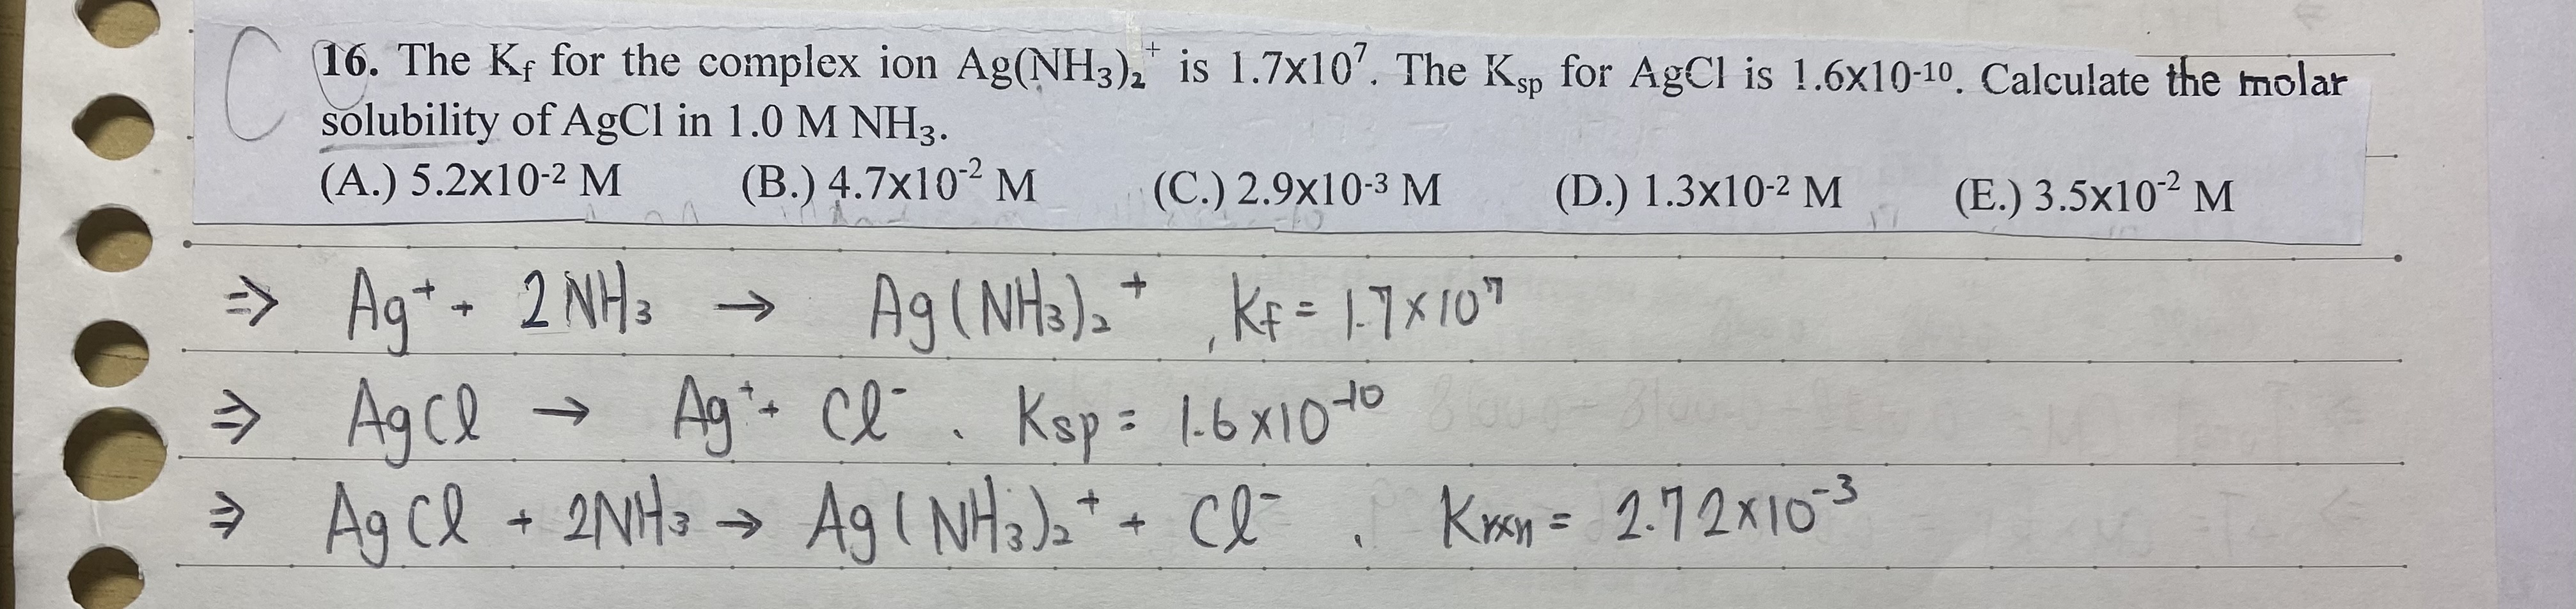 C 16. The Kf for the complex ion Ag(NH₃)₂⁺ is 1.7x10⁷. The Ksp for AgCl is 1.6x10⁻¹⁰. Calculate the molar
solubility of AgCl in 1.0 M NH₃.
(A.) 5.2x10⁻² M (B.) 4.7x10⁻² M (C.) 2.9x10⁻³ M (D.) 1.3x10⁻² M (E.) 3.5x10⁻² M
⇒ Ag⁺ + 2NH₃ → Ag(NH₃)₂⁺ , Kf = 1.7×10⁷
⇒ AgCl → Ag⁺ + Cl⁻ . Ksp = 1.6×10⁻¹⁰
⇒ AgCl + 2NH₃ → Ag(NH₃)₂⁺ + Cl⁻ , Krxn = 2.72×10⁻³